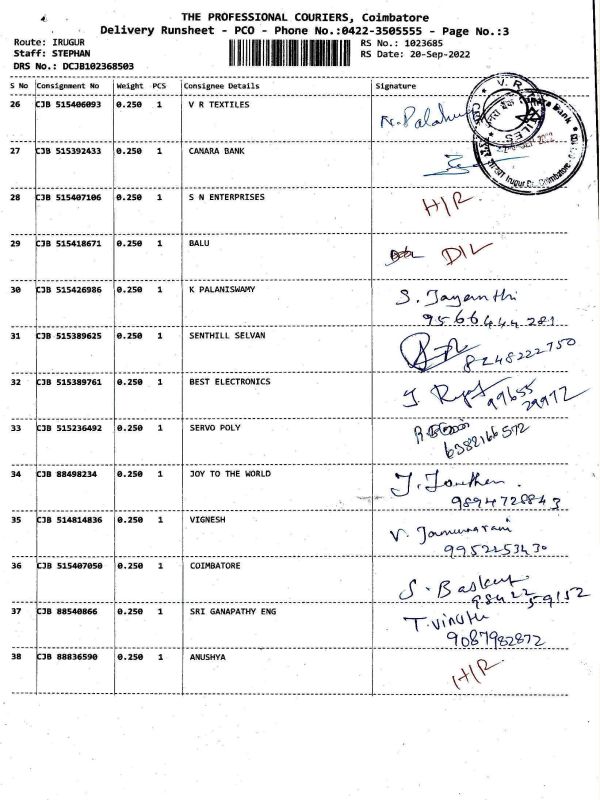 THE PROFESSIONAL COURIERS, Coimbatore
Delivery Runsheet - PCO - Phone No.:0422-3505555 - Page No.:3
Route: IRUGUR
Staff: STEPHAN
DRS No.: DCJB102368503
RS No.: 1023685
RS Date: 20-Sep-2022
S No Consignment No Weight PCS Consignee Details Signature
26 CJB 515406093 0.250 1 V R TEXTILES
27 CJB 515392433 0.250 1 CANARA BANK
28 CJB 515407106 0.250 1 S N ENTERPRISES H/R.
29 CJB 515418671 0.250 1 BALU D/L
30 CJB 515426986 0.250 1 K PALANISWAMY S. Jayanthi
9566444281
31 CJB 515389625 0.250 1 SENTHILL SELVAN
8248222750
32 CJB 515389761 0.250 1 BEST ELECTRONICS
99655
29972
33 CJB 515236492 0.250 1 SERVO POLY
6382166572
34 CJB 88498234 0.250 1 JOY TO THE WORLD
9894728843
35 CJB 514814836 0.250 1 VIGNESH V. Jamunarani
9952253430
36 CJB 515407050 0.250 1 COIMBATORE S. Baskar
98422 59152
37 CJB 88540866 0.250 1 SRI GANAPATHY ENG T. vinoth
9087982872
38 CJB 88836590 0.250 1 ANUSHYA H/R